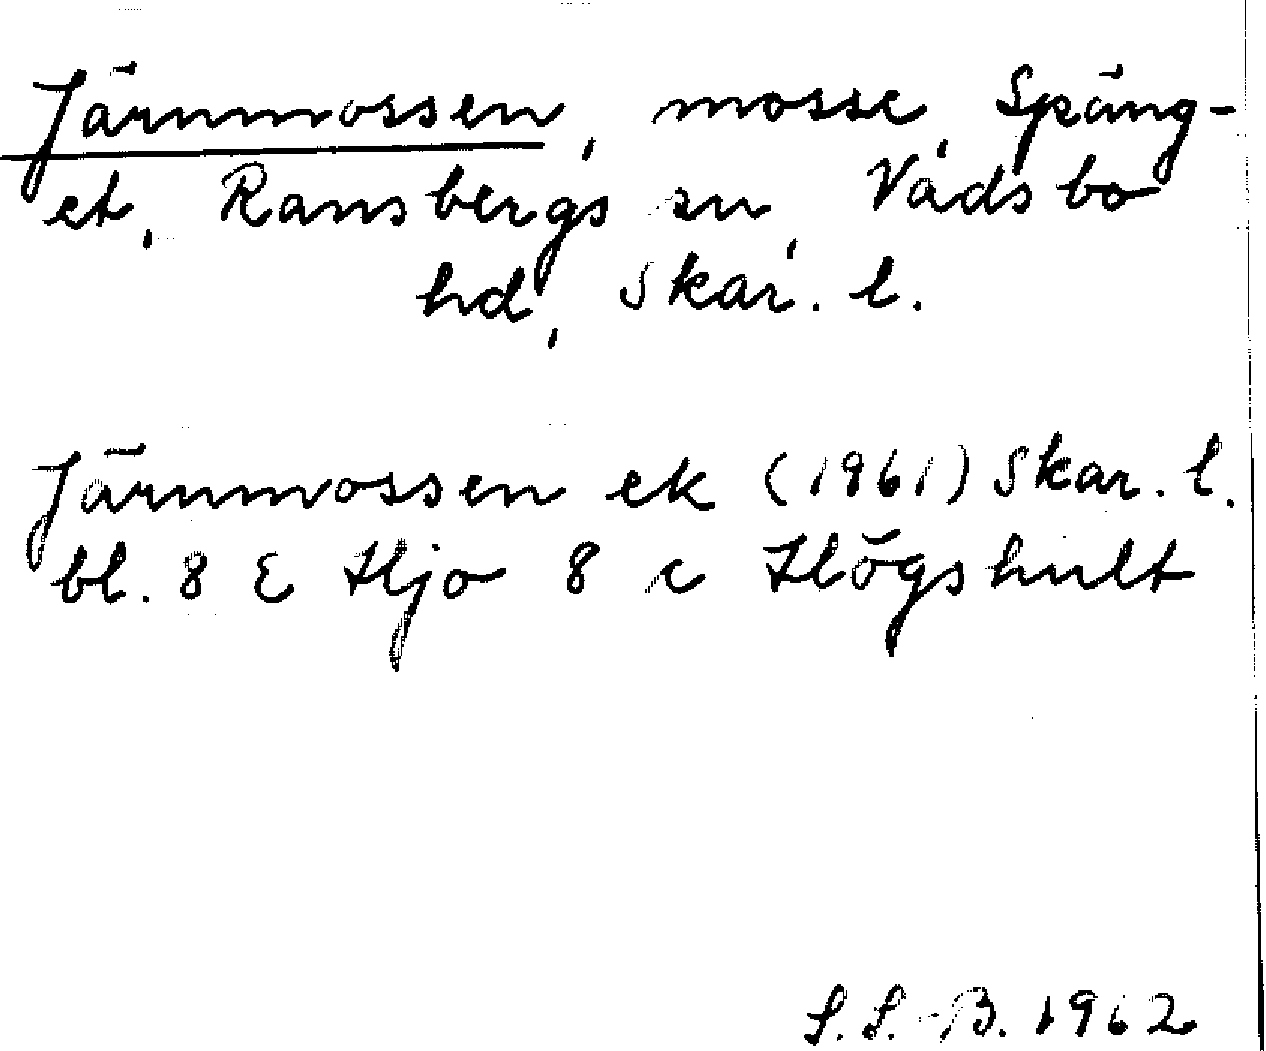 Järnmossen, mosse, Späng-
et, Ransbergs sn, Vadsbo
hd, Skar. l.
Järnmossen ek (1961) Skar. l.
bl. 8 E Hjo 8 c Högshult
S.S.-B. 1962